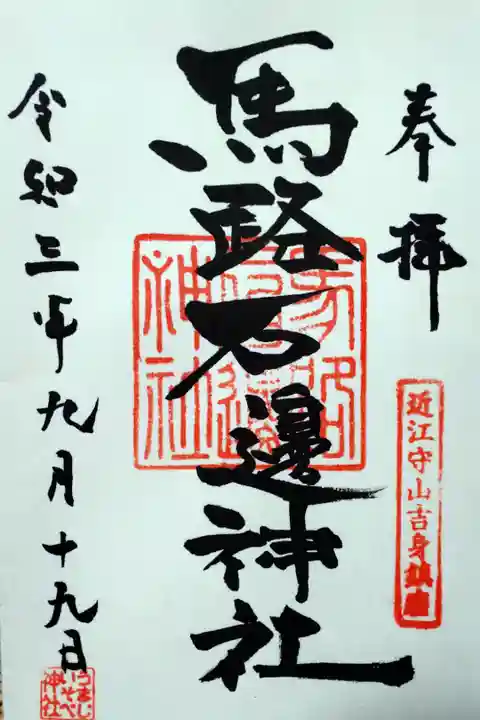 奉拝
近江守山吉身鎮座
馬路石邊神社
令和三年九月十九日
うましいそべ神社